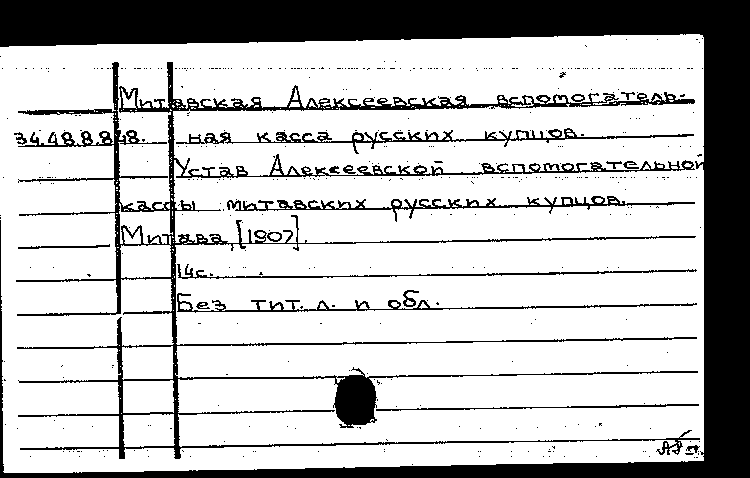 Митавская Алексеевская вспомогатель-
34.48.8.848. ная касса русских купцов.
Устав Алексеевской вспомогательной
кассы митавских русских купцов.
Митава, [1907].
14с.
Без тит. л. и обл.